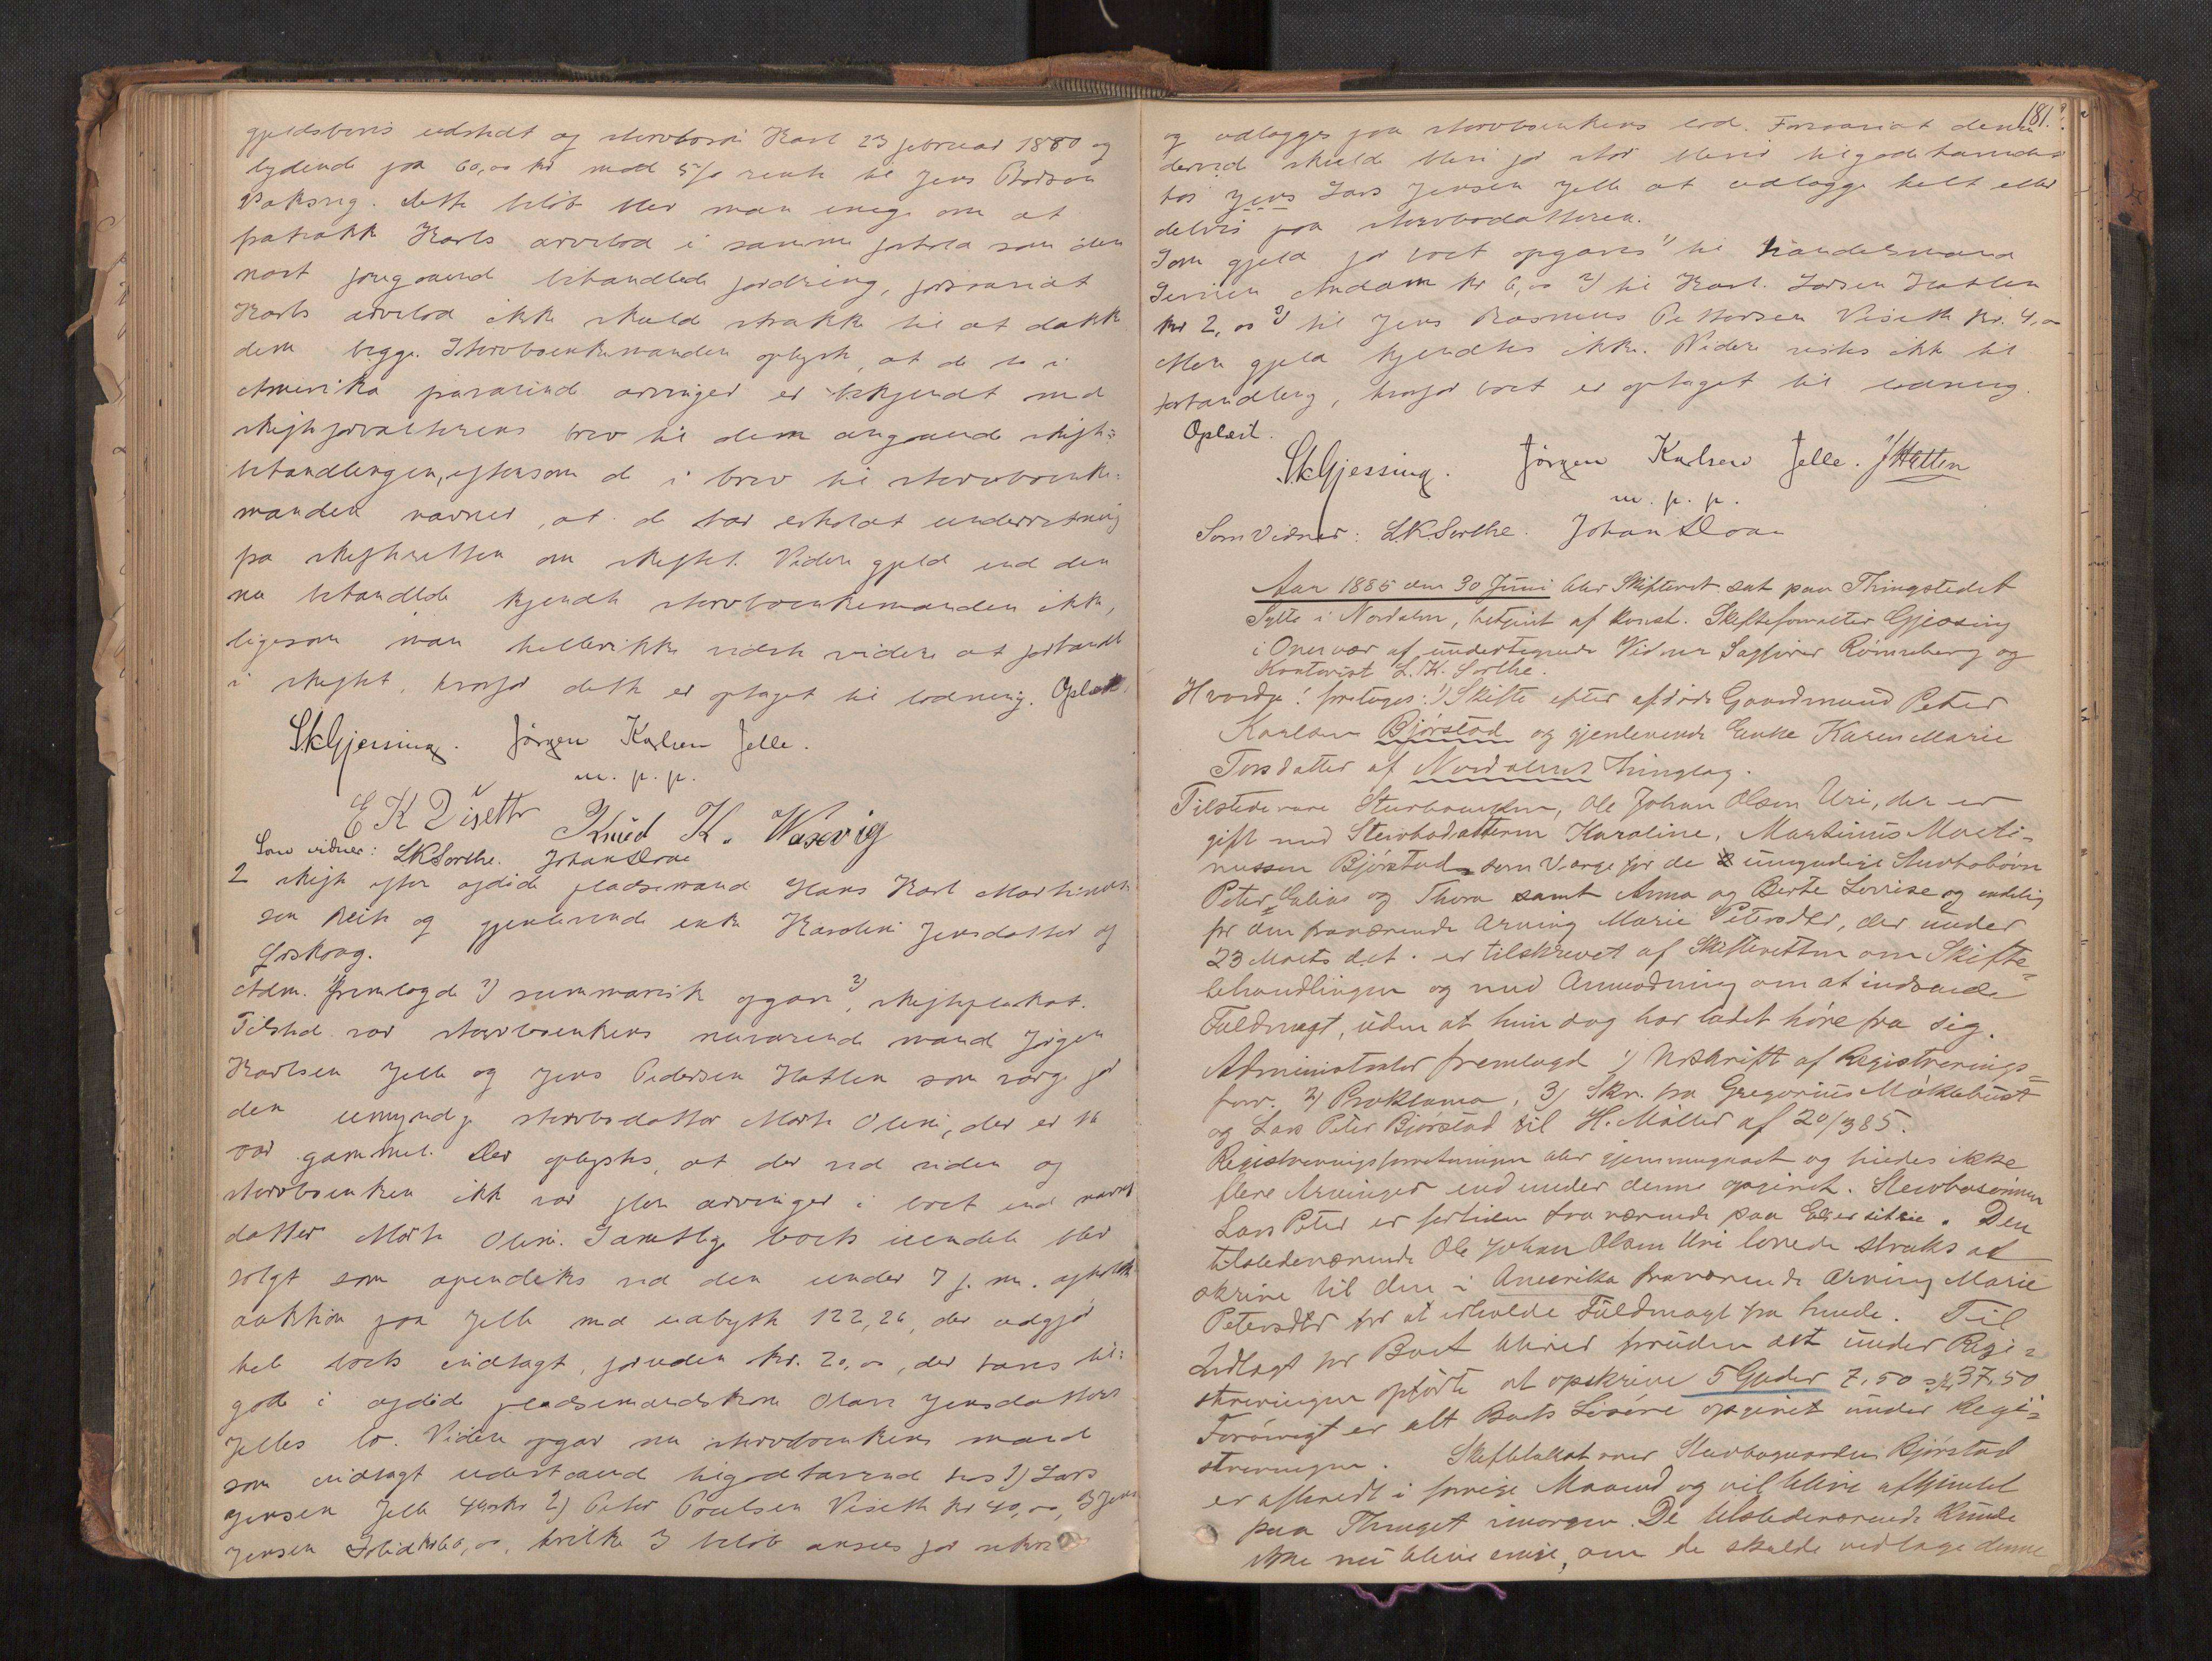 gjeldsbevis udstedt og stervbosøn Karl 23 februar 1880 og
lydende paa 60,00 kr med 5% rente til Jens
Vaksvig. Dette beløb blev man enige om at
fatrække Karls arvelod i samme forhold som den
næst foregaaende behandlede fordring, forsaavidt
Karls arvelod ikke skulde strække til at dække
dem begge. Stervboenkemanden oplyste, at de to i
Amerika fraværende arvinger er bekjendt med
skifteforvalterens brev til dem angaaende skifte-
behandlingen, eftersom de i brev til stervboenke-
manden nævner, at de har erholdt underretning
fra skifteretten om skiftet. Videre gjeld end den
nu behandlede kjendte stervboenkemanden ikke,
ligesom man hellerikke vidste videre at forhandle
i skiftet, hvorfor dette er optaget til lodning. Oplæst.
SkGjessing. Jørgen Karlsen Jelle.
m. p. p.
E K Viseth Knud K. Waxevig
Som vidner: LKSorthe. Johan Doae
2 skifte efter afdøde pladsemand Hans Karl Martinus-
sen Reite og gjenlevende enke Karoline Jensdatter af
Ørskog.
Adm. fremlagde 1) summarisk opgave 2) skifteplakat.
Tilstede var stervboenkens nuværende mand Jørgen
Karlsen Jelle og Jens Pedersen Hatlen som værge for
den umyndige stervbodatter Marte Oline, der er 16
aar gammel. Det oplystes, at der ved siden af
stervboenken ikke var flere arvinger i boet end nævnte
datter Marte Oline. Samtlige boets eiendele blev
solgt som apendiks ved den under 7 f. m. afholdte
auktion paa Jelle med udbytte 122,26, der udgjør
hele boets indtægt, foruden kr. 20,00, der haves til-
gode i afdøde pladsemandskone Olave Jensdatters
Jelles bo. Videre opgav nu stervboenkens mand
som indtægt udestaaende tilgodehavende hos 1) Lars
Jensen Jelle 2) Peter Poulsen Viseth kr 40,00, 3 Jens
Jensen kr 60,00, hvilke 3 beløb ansees for usikre
181.
og udlægges paa stervboenkens lod. Forsaavidt denne
derved skulde blive for stor bliver tilgodehavendet
hos Jens Lars Jensen Jelle at udlægge helt eller
delvis paa stervbodatteren.
Som gjeld for boet opgaves 1) til handelsmand
Iversen Andaam kr 6,00 2) til Karl Larsen Hatlen
kr 2,00 3) til Jens Rasmus Pettersen Viseth kr. 4,00
Mere gjeld kjendtes ikke. Videre vistes ikke til
forhandling, hvorfor boet er optaget til lodning.
Oplæst.
SkGjessing. Jørgen Karlsen Jelle. JHatlen
m. p. p.
Som Vidner: L.K.Sorthe. Johan Doae
Aar 1885 den 30 Juni blev Skifteret sat paa Thingstedet
Sylte i Nordalen, betjent af konst. Skifteforvalter Gjessing
i Overvær af undertegnede Vidner Sagfører Rønneberg og
Kontorist L. K. Sorthe.
Hvorda! foretoges: 1) Skifte efter afdøde Gaardmand Peter
Karlsen Bjørstad og gjenlevende Enke Karen Marie
Torsdatter af Nordalens Thinglag.
Tilstede vare Stervboenken, Ole Johan Olsen Uri, der er
gift med Stervbodatteren Karoline, Martinus Marti-
nussen Bjørstad som Værge for de umyndige Stervbobørn
Peter, Elias og Thora samt Anna og Berte Lovise og endelig
for den fraværende Arving Marie Petersdtr, der under
23 Marts d.å. er tilskrevet af Skifteretten om Skifte-
behandlingen og med Anmodning om at indsende
Fuldmagt, uden at hun dog har ladet høre fra sig.
Administrator fremlagde 1) Udskrift af Registrerings-
forr. 2) Proklama, 3) Skr. fra Gregorius Møklebust
og Lars Peter Bjørstad til H. Møller af 20/3 85.
Registreringsforretningen blev gjennemgaaet og havdes ikke
flere Arvinger end under denne opgivet. Stervbosønnen
Lars Peter er fortiden fraværende paa Exersitsie. Den
tilstedeværende Ole Johan Olsen Uri lovede straks at
skrive til den i Amerika fraværende Arving Marie
Petersdtr for at erholde Fuldmagt fra hende. Til
Indtægt for Boet bliver foruden det under Regi-
streringen opførte at opskrive 5 Gjeder 7,50 37,50
Forøvrigt er alt Boets Løsøre opgivet under Regi-
streringen. Skiftetakst over Stervbogaarden Bjørstad
er afholdt i forrige Maaned og vil blive afhjemlet
paa Thinget imorgen. De tilstedeværende kunde
ikke nu blive enige, om de skulde vedtage denne